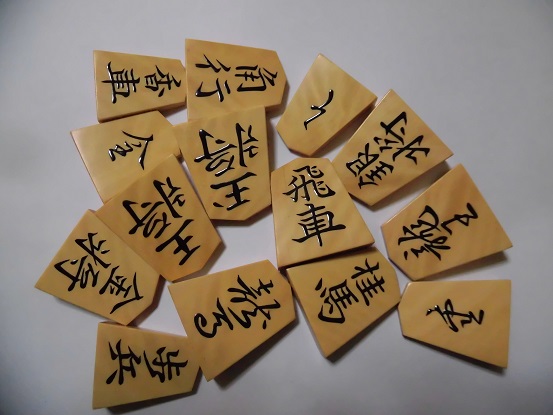 香車
角行
と
銀将
玉将
飛車
王将
龍王
金将
龍馬
桂馬
歩兵